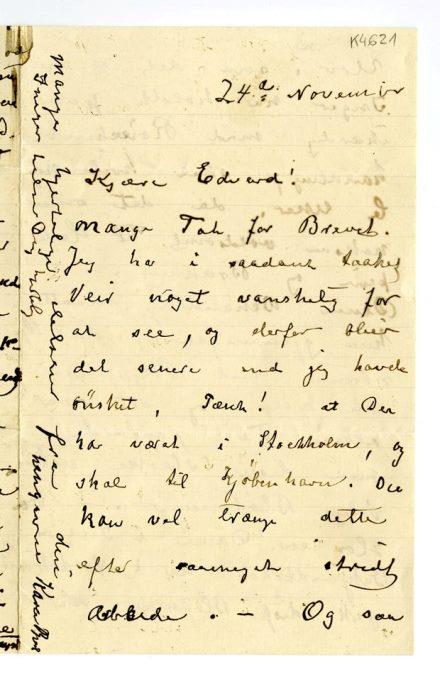 K4621
24de November
Kjære Edvard!
Mange Tak for Brevet.
Jeg har i saadant taaket
Veir noget vanskelig for
at see, og derfor bliver
det senere end jeg havde
ønsket, Tænk! at Du
har været i Stockholm, og
skal til Kjøbenhavn. Du
kan vel trænge dette
efter saameget stridt
Arbeide. — Og saa
Mange hjertelige Hilsener fra din
hengivne